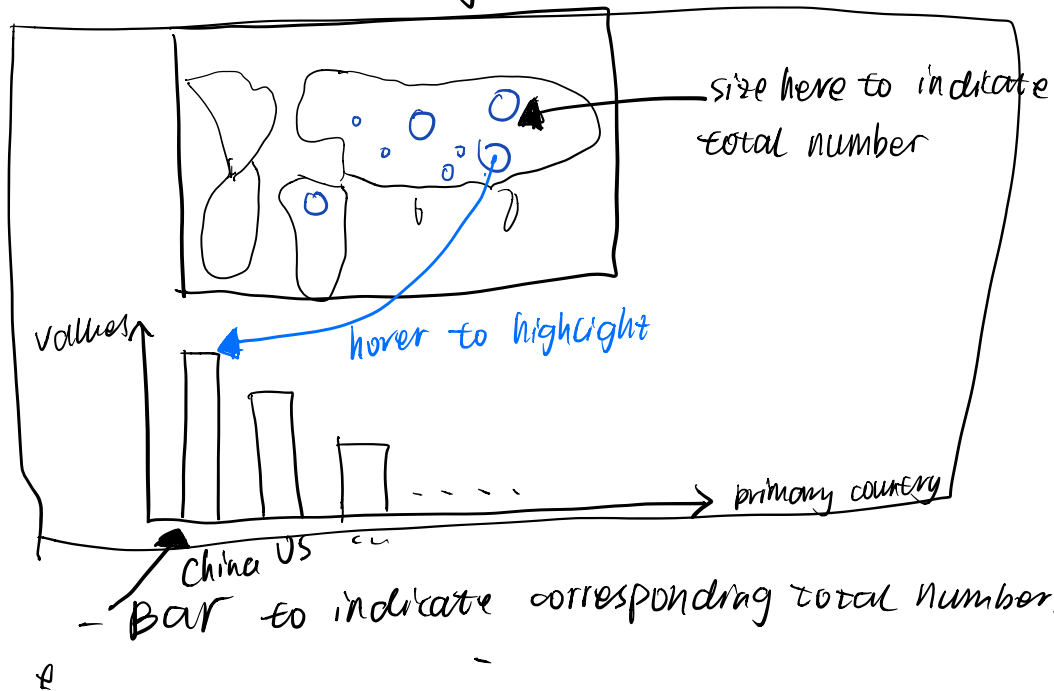 size here to indicate
total number
values
hover to highlight
primary country
China US
- Bar to indicate corresponding total number.